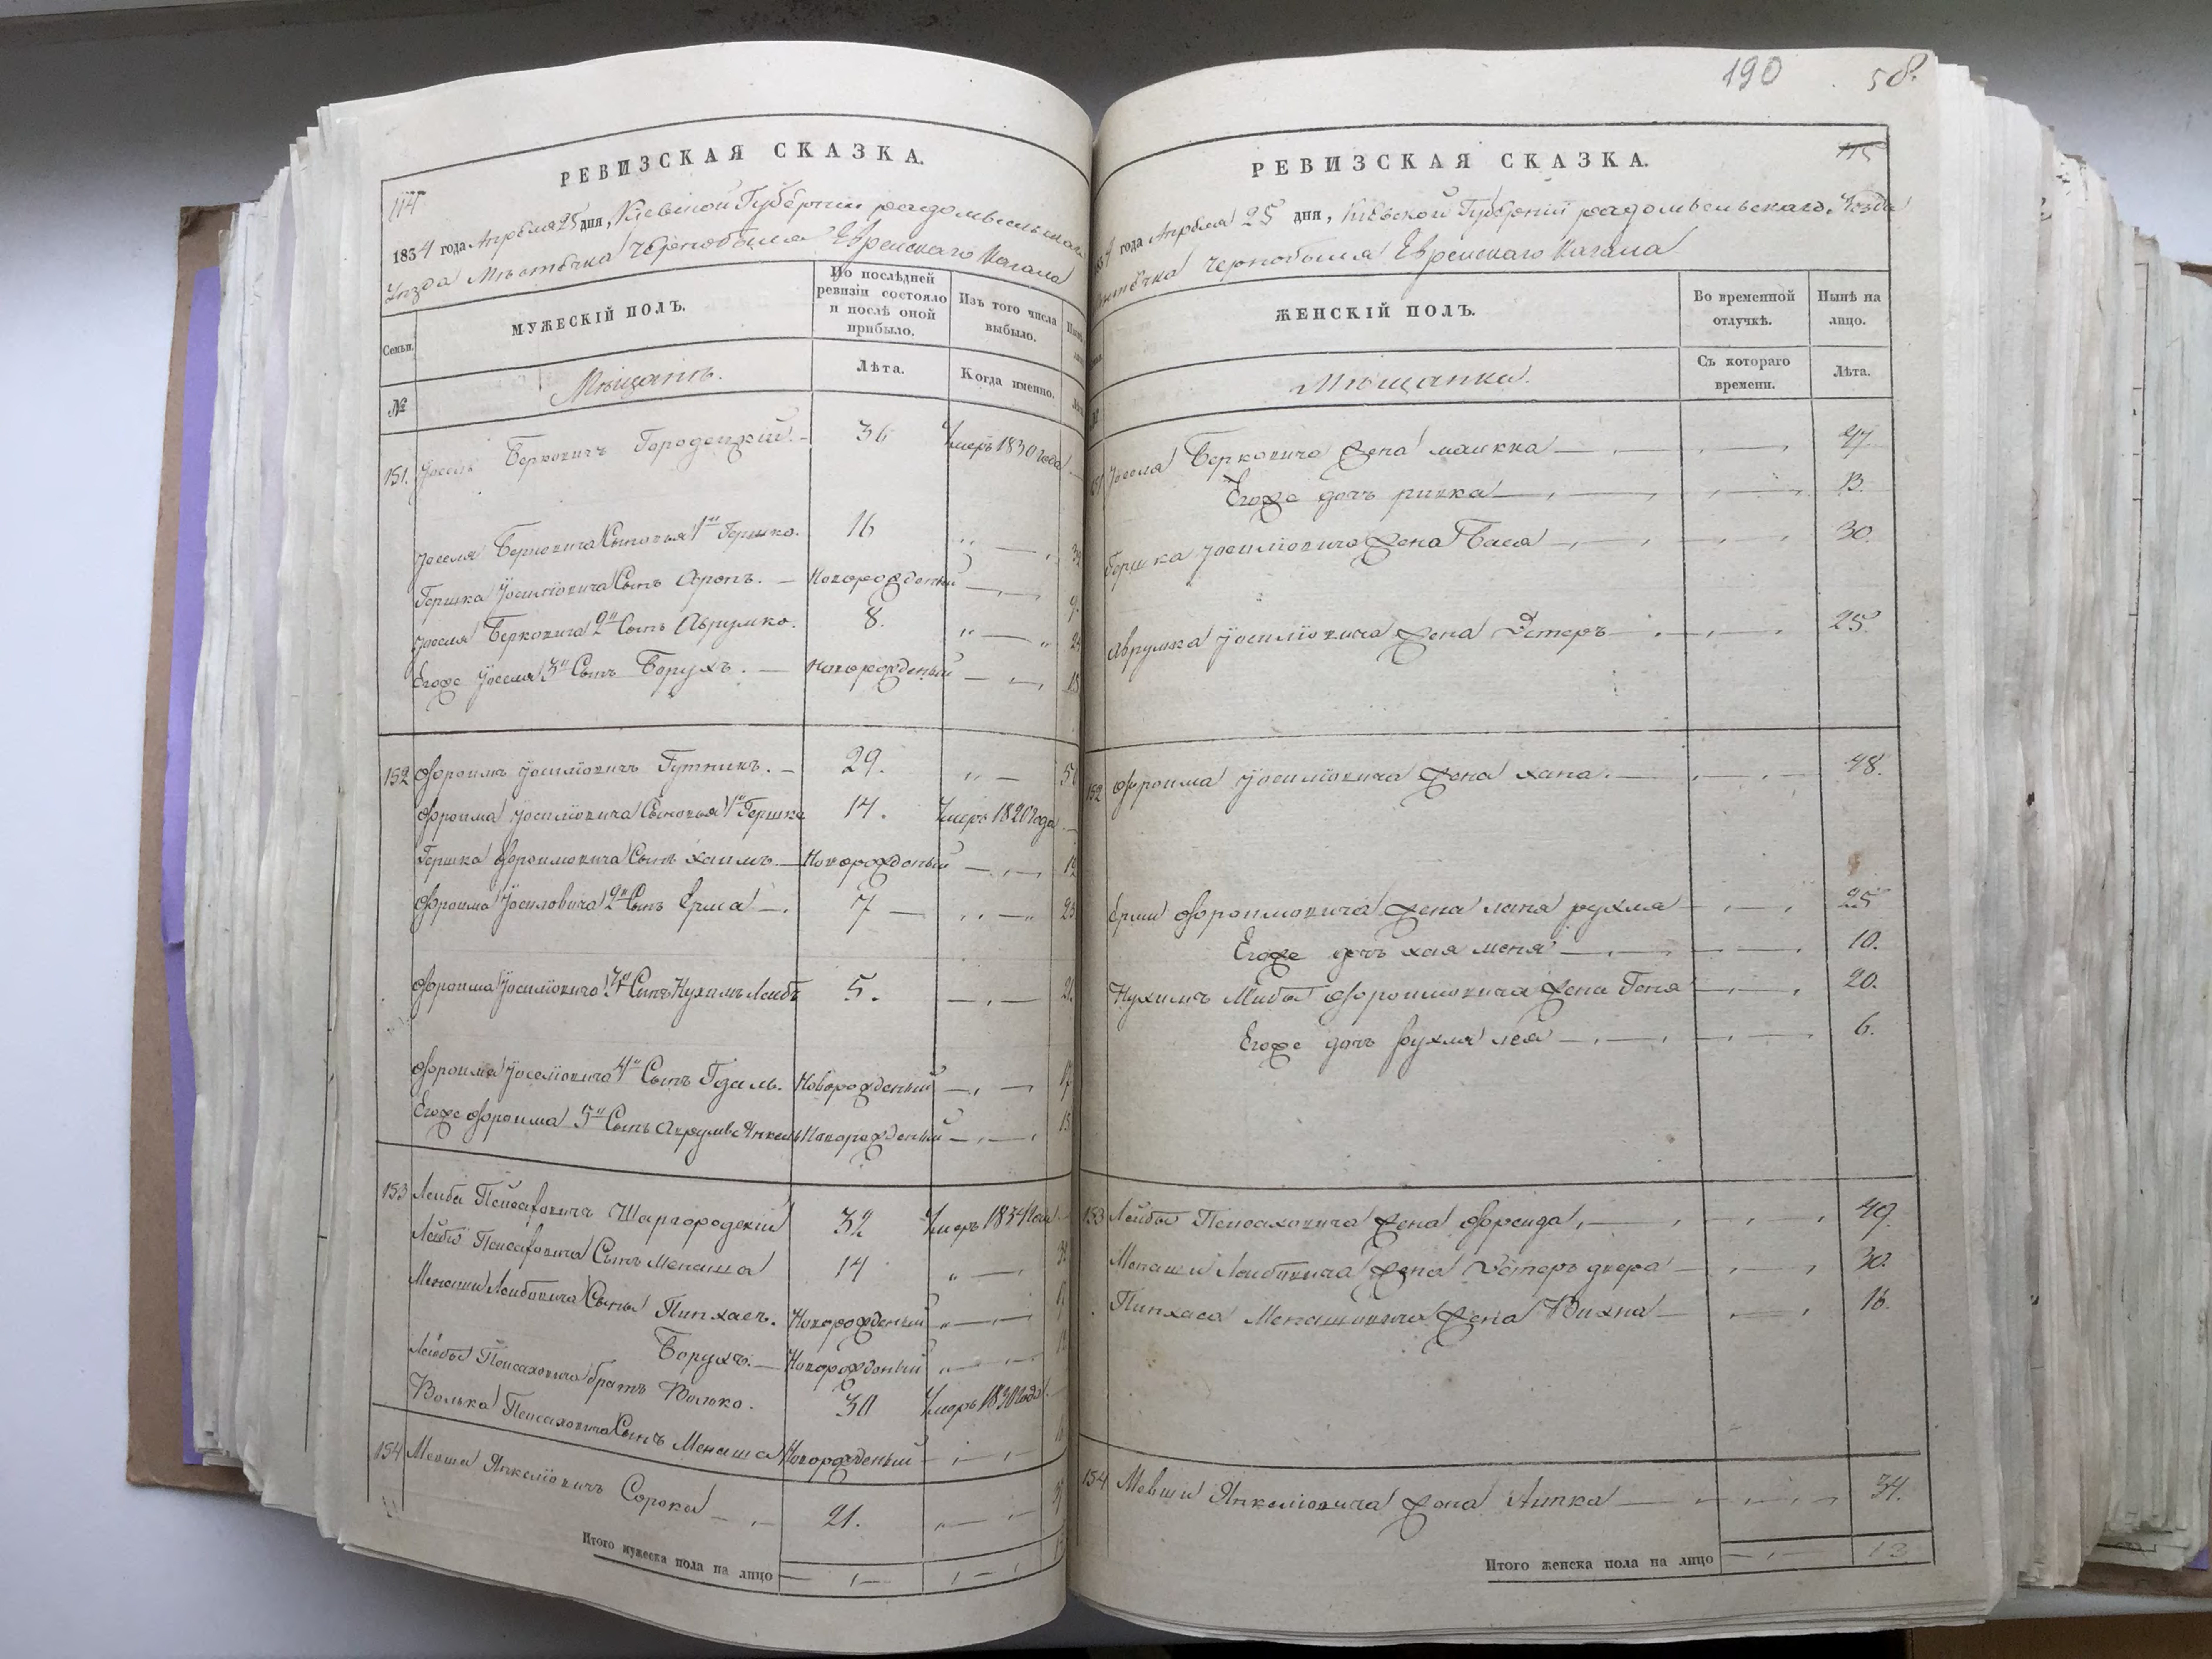 РЕВИЗСКАЯ СКАЗКА.
114
1834 года Апреля 25 дня, Киевской Губернии радомысльскаго
Уезда Местечка Чернобыля Еврейскаго Кагала
Семьи.
МУЖЕСКІЙ ПОЛЪ.
По послѣдней ревизіи состояло и послѣ оной прибыло.
Изъ того числа выбыло.
№
Мещанъ.
Лѣта.
Когда именно.
151. Иосель Берковичъ Городецкий. 36 Умеръ 1830 года
Иоселя Берковича Сыновья 1й Гершко. 16
Гершка Иосиловича Сынъ Аронъ. Новорожденый 9.
Иоселя Берковича 2й Сынъ Аврумко. 8.
Егоже Иоселя 3й Сынъ Борухъ. Новорожденый 18
152 Фроимъ Иосиловичъ Гутникъ. 29.
Фроима Иосиловича Сыновья 1й Гершко 14. Умеръ 1820 года
Гершка Фроимовича Сынъ Хаимъ Новорожденый
Фроима Иосиловича 2й Сынъ Ерма 7
Фроима Иосиловича 3й Сынъ Нухимъ Лейбъ 5.
Фроима Иосиловича 4й Сынъ Новорожденый 17
Егоже Фроима 5й Сынъ Аврумъ Янкель Новорожденый 15
153 Лейба Пейсаховичъ Шаргородский 32 Умеръ 1834 года
Лейбы Пейсаховича Сынъ Менаша 14
Менаши Лейбовича Сыны Пинхасъ. Новорожденый
Борухъ. Новорожденый
Лейбы Пейсаховича братъ Волько. 30 Умеръ 1830 года
Волька Пейсаховича Сынъ Менаша Новорожденый
154 Мовша Янкелиовичъ Сорока 21.
Итого мужеска пола на лицо
190
58.
РЕВИЗСКАЯ СКАЗКА.
115
года Апреля 25 дня, Киевской Губернии радомысльскаго Уезда
Чернобыля Еврейскаго Кагала
ЖЕНСКІЙ ПОЛЪ.
Во временной отлучкѣ.
Нынѣ на лицо.
Мещанка.
Съ котораго времени.
Лѣта.
Иоселя Берковича жена Малкка 47.
Егоже дочь ривка 13.
Гершка Иосиловича жена Бася 30.
Аврумка Иосиловича жена Эстеръ 25.
152 Фроима Иосиловича жена хана. 48.
Ерми Фроимовича жена рухля 25
Егоже дочь хая 10.
Нухима Лейбы Фроимовича жена Геня 20.
Егоже дочь рухля лея 6.
153 Лейбы Пейсаховича жена Фрейда. 49.
Менаши Лейбовича жена Эстеръ двера 30.
Пинхаса Менашовича жена Вихна 16.
154 Мовши Янкелиовича жена Липка 34.
Итого женска пола на лицо 13